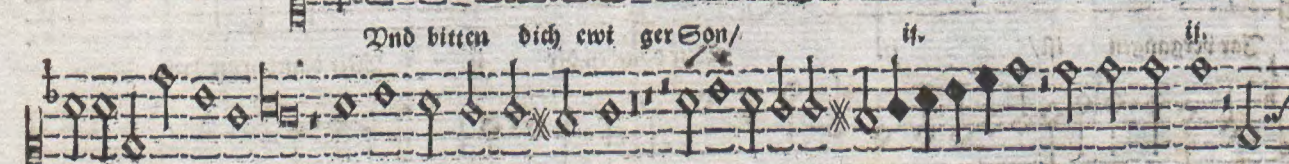 Vnd bitten dich ewi ger Son/ ij. ij.